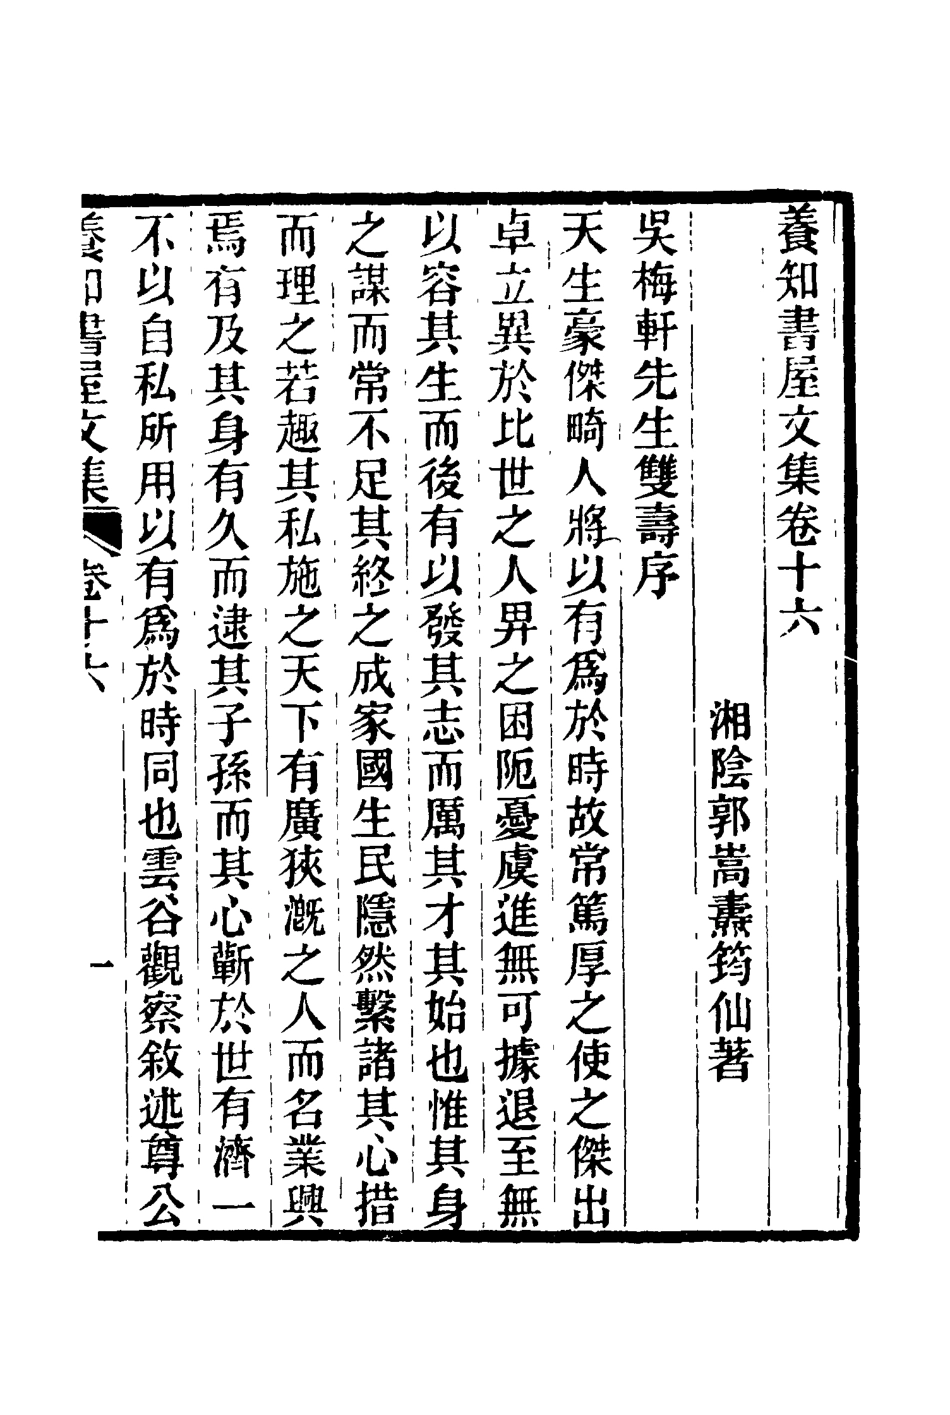 養知書屋文集卷十六
湘陰郭嵩燾筠仙著
吳梅軒先生雙壽序
天生豪傑畸人將以有爲於時故常篤厚之使之傑出
卓立異於比世之人畀之困阨憂虞進無可據退至無
以容其生而後有以發其志而厲其才其始也惟其身
之謀而常不足其終之成家國生民隱然繫諸其心措
而理之若趣其私施之天下有廣狹漑之人而名業興
焉有及其身有久而逮其子孫而其心蘄於世有濟一
不以自私所用以有爲於時同也雲谷觀察敘述尊公
養知書屋文集 卷十六 一